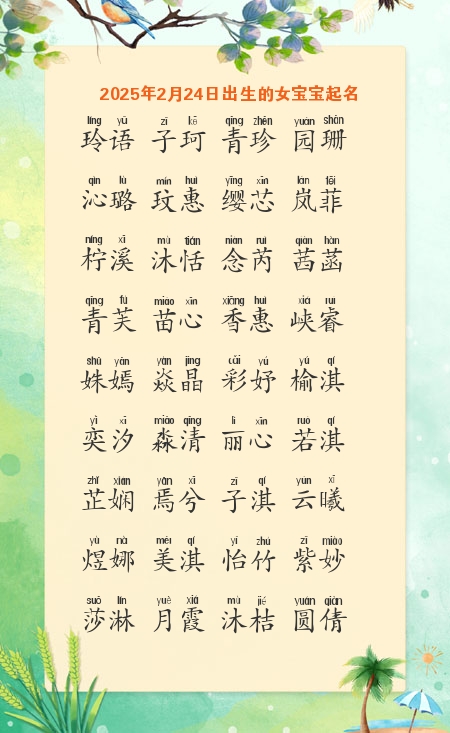 2025年2月24日出生的女宝宝起名
líng yǔ zǐ kē qīng zhēn yuán shān
玲语 子珂 青珍 园珊
qìn lù mín huì yīng xīn lán fēi
沁璐 玟惠 缨芯 岚菲
níng xī mù tián niàn ruì qiàn hàn
柠溪 沐恬 念芮 茜菡
qīng fú miáo xīn xiāng huì xiá ruì
青芙 苗心 香惠 峡睿
shū yān yàn jīng cǎi yú yú qí
姝嫣 焱晶 彩妤 榆淇
yì xī miǎo qīng lì xīn ruò qí
奕汐 淼清 丽心 若淇
zhǐ xián yān xī zǐ qí yún xī
芷娴 焉兮 子淇 云曦
yù nà měi qí yí zhú zǐ miào
煜娜 美淇 怡竹 紫妙
suō lín yuè xiá mù jié yuán qiàn
莎淋 月霞 沐桔 圆倩